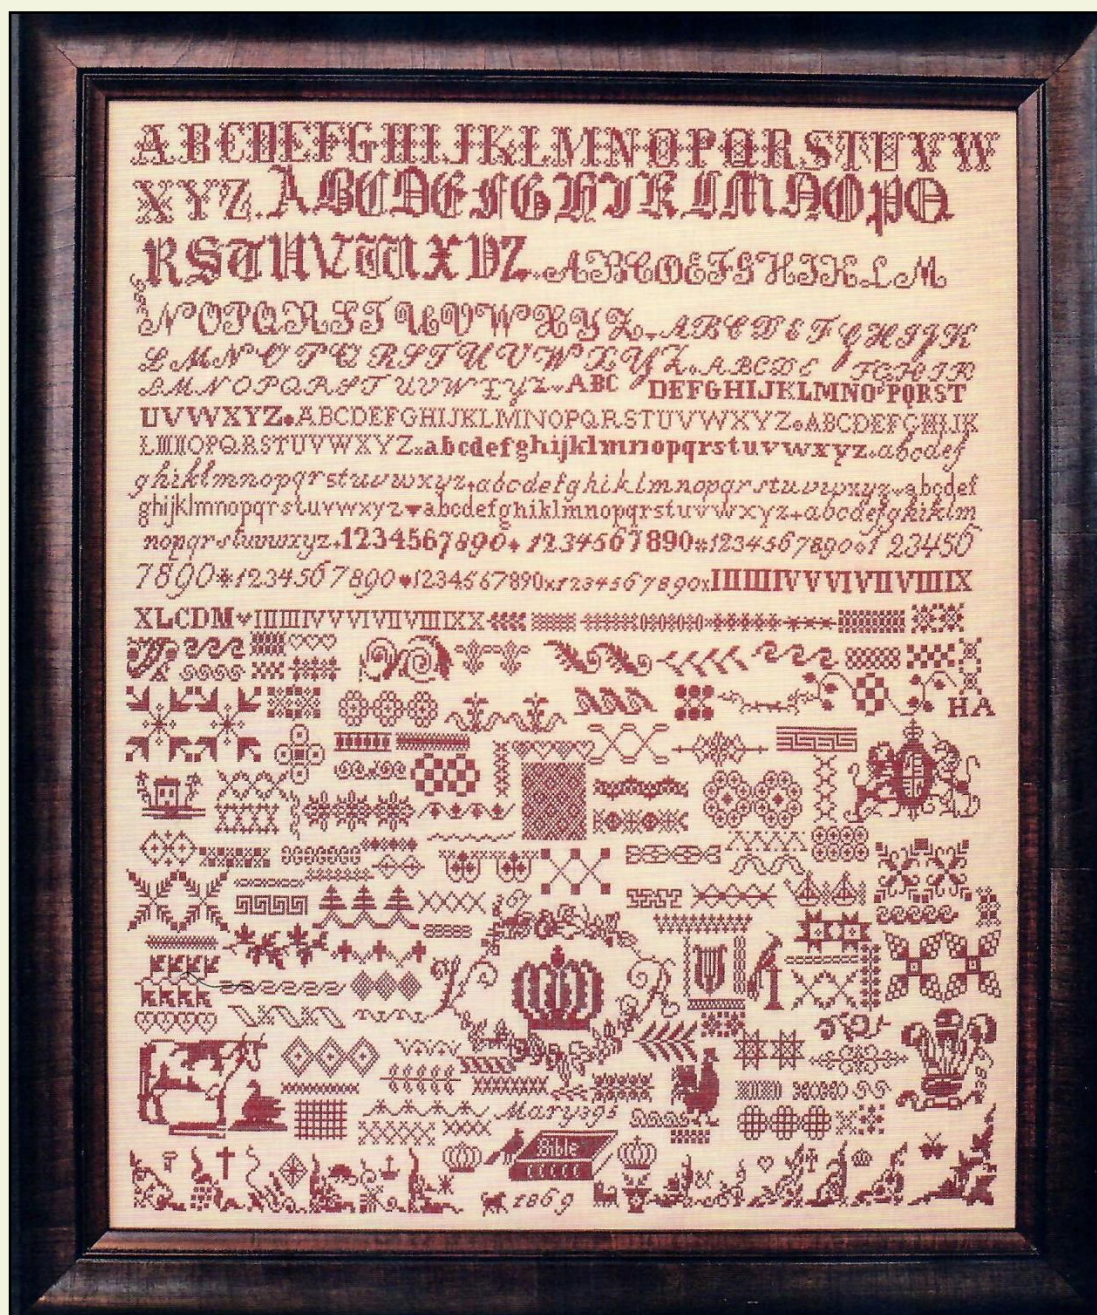 ABCDEFGHIJKLMNOPQRSTUVW
XYZ.ABCDEFGHIKLMNOPQ
RSTUVWXYZ.ABCDEFGHIKLM
NOPQRSTUVWXYZ ABCDEFGHIJK
LMNOPQRSTUVWXYZ ABCDE FGHIK
LMNOPQRSTUVWXYZ ABC DEFGHIJKLMNOPQRST
UVWXYZ ABCDEFGHIJKLMNOPQRSTUVWXYZ ABCDEFGHIJK
LMNOPQRSTUVWXYZ abcdefghijklmnopqrstuvwxyz abcdef
ghiklmnopqrstuvwxyz abcdefghiklmnopqrstuvwxyz abcdef
ghijklmnopqrstuvwxyz abcdefghiklmnopqrstuvwxyz abcdefghiklm
nopqrstuvwxyz 1234567890 1234567890 1234567890 123456
7890 1234567890 1234567890 1234567890 IIIIIIIVVVIVIIVIIIIX
XLCDM IIIIIIIVVVIVIIVIIIIXX
HA
Mary395
Bible
1869